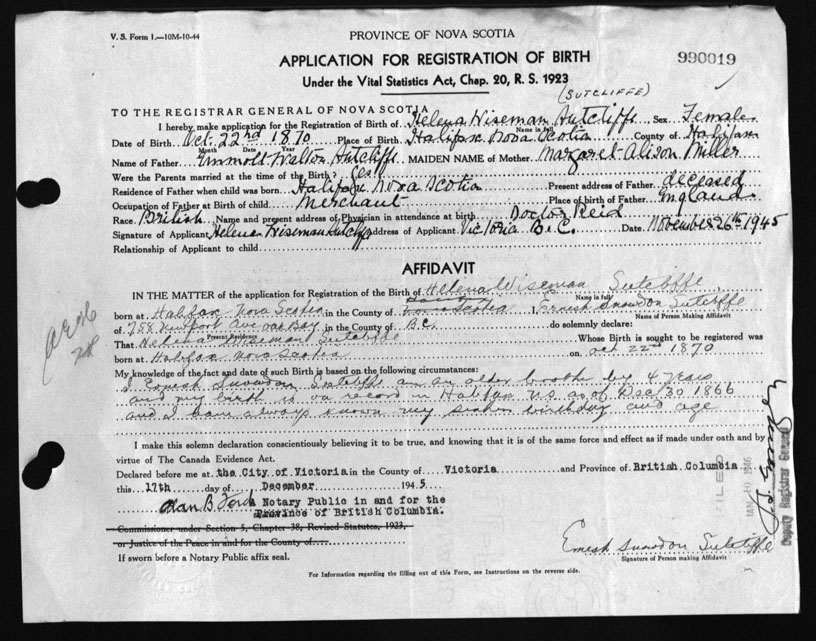 V. S. Form 1.—10M-10-44
PROVINCE OF NOVA SCOTIA
APPLICATION FOR REGISTRATION OF BIRTH
990019
Under the Vital Statistics Act, Chap. 20, R. S. 1923
(SUTCLIFFE)
TO THE REGISTRAR GENERAL OF NOVA SCOTIA
I hereby make application for the Registration of Birth of Helena Wiseman Sutcliffe Sex Female
Name in full
Date of Birth Oct. 22nd 1870 Place of Birth Halifax Nova Scotia County of Halifax
Month Date Year
Name of Father Walton Sutcliffe MAIDEN NAME of Mother Margaret Alison Miller
Were the Parents married at the time of the Birth? yes
Residence of Father when child was born Halifax Nova Scotia Present address of Father deceased
Occupation of Father at Birth of child Merchant Place of birth of Father England
Race British Name and present address of Physician in attendance at birth Doctor Reid
Signature of Applicant Helena Wiseman Sutcliffe Address of Applicant Victoria B.C. Date November 26th 1945
Relationship of Applicant to child
AFFIDAVIT
IN THE MATTER of the application for Registration of the Birth of Helena Wiseman Sutcliffe
Name in full
born at Halifax Nova Scotia in the County of Nova Scotia I, Ernest Snowdon Sutcliffe
Name of Person Making Affidavit
of 758 Newport Ave Oak Bay in the County of B.C. do solemnly declare:
Present Residence
That Helena Wiseman Sutcliffe Whose Birth is sought to be registered was
born at Halifax Nova Scotia on Oct 22nd 1870
My knowledge of the fact and date of such Birth is based on the following circumstances:
I Ernest Snowdon Sutcliffe am an older brother by 4 years
and my birth is on record in Halifax N.S. as of Dec 30 1866
and I have always known my sisters birthday and age
I make this solemn declaration conscientiously believing it to be true, and knowing that it is of the same force and effect as if made under oath and by
virtue of The Canada Evidence Act.
Declared before me at the City of Victoria in the County of Victoria and Province of British Columbia
this 17th day of December 1945
Alan B. Ford a Notary Public in and for the
Province of British Columbia.
Commissioner under Section 5, Chapter 38, Revised Statutes, 1923,
or Justice of the Peace in and for County of
If sworn before a Notary Public affix seal.
Ernest Snowdon Sutcliffe
Signature of Person making Affidavit
For Information regarding the filling out of this Form, see Instructions on the reverse side.
FILED
JAN 10 1946
Deputy Registrar General